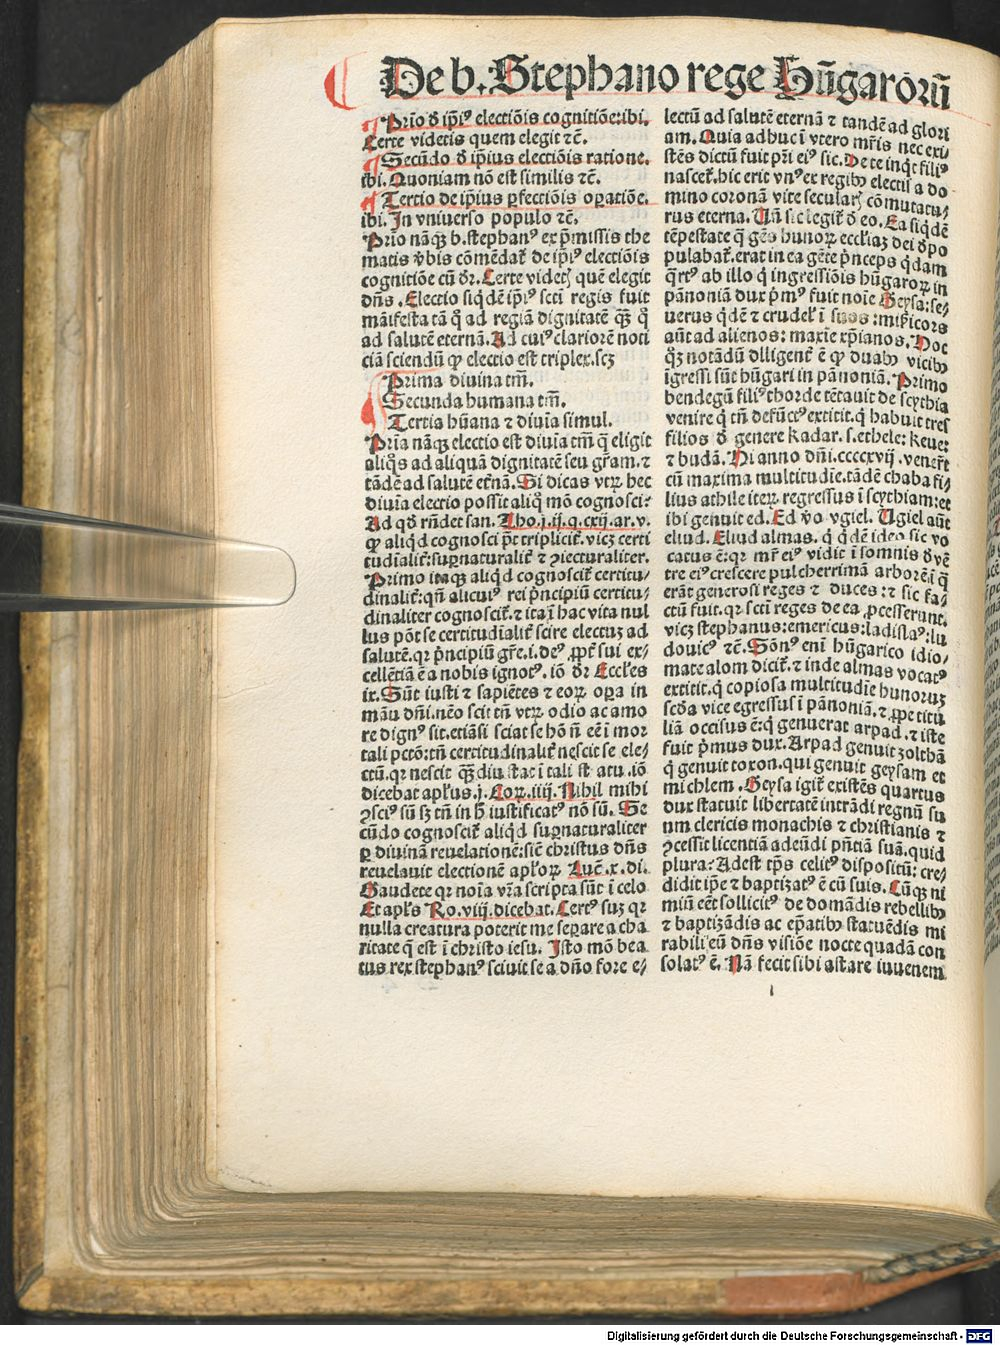 De b. Stephano rege Hūgarorū
Prīo d̄ ip̄iꝰ electiōis cognitiōe:ibi.
Certe videtis quem elegit ⁊c̄.
Secūdo d̄ ip̄ius electiōis ratione.
ibi. Quoniam nō est similis ⁊c̄.
Tertio de ip̄ius ꝑfectiōis oꝑatiōe.
ibi. In vniuerso populo ⁊c̄.
Prīo nāqꝫ b. stephanꝰ ex p̄missis the
matis v̄bis cōmēdat᷑ de ip̄iꝰ electiōis
cognitiōe cū d̄r. Certe videtꝭ quē elegit
dn̄s. Electio siqdē ip̄iꝰ sctī regis fuit
māifesta tā q̊ ad regiā dignitatē qꝫ̄ q̊
ad salutē eternā. Ad cuiꝰ clariorē noti
ciā sciendū ꝙ electio est triplex. scꝫ
Prima diuina tm̄.
Secunda humana tm̄.
Tertia hūana ⁊ diuīa simul.
Prīa nāqꝫ electio est diuīa tm̄ q̄ eligit
aliq̊s ad aliquā dignitatē seu gr̄am. ⁊
tādē ad salutē et̄nā. Si dicas vtꝝ hec
diuīa electio possit aliq̊ mō cognosci?
Ad qd̄ rn̄det san. Tho. j. ij. q. cxij. ar. v.
ꝙ aliqd cognosci pōt triplicit᷑. vicꝫ certi
tudīalit᷑: suꝑnaturalit᷑ ⁊ ꝯiecturaliter.
Primo itaqꝫ aliqd cognoscit᷑ certitu/
dinalit᷑: qn̄ alicuiꝰ rei p̄ncipiū certitu/
dinaliter cognoscit᷑. ⁊ ita ī hac vita nul
lus pōt se certitudīalit᷑ scire electuꝫ ad
salutē. qꝛ p̄ncipiū gr̄e. i. deꝰ, ꝓpt̄ sui ex/
cellētiā ē a nobis ignotꝰ. iō d̄r Eccles
ix. Sūt iusti ⁊ sapiētes ⁊ eoꝝ oꝑa in
māu dn̄i. nēo scit tn̄ vtꝝ odio ac amo
re dignꝰ sit. etiāsi sciat se hō n̄ eē ī mor
tali pctō: tn̄ certitudinalit᷑ nescit se ele/
ctū. qꝛ nescit qꝫ̄ diu stat ī tali st atu. iō
dicebat apl̄us. j. Coꝝ. iiij. Nihil mihi
ꝯsciꝰ sū sꝫ tn̄ in h̄ iustificatꝰ nō sū. Se
cūdo cognoscit᷑ aliqd suꝑnaturaliter
ꝑ diuinā reuelationē: sic̄ christus dn̄s
reuelauit electionē apl̄oꝝ Luc̄. x. di.
Gaudete qꝛ noīa vr̄a scripta sūt ī celo
Et apl̄s Ro. viij. dicebat. Certꝰ suꝫ qꝛ
nulla creatura poterit me seꝑare a cha
ritate q̄ est ī christo iesu. Isto mō bea
tus rex stephanꝰ sciuit se a dn̄o fore e/
lectū ad salutē eternā ⁊ tandē ad glori
am. Quia adhuc ī vtero mr̄is nec exi/
stēs dictū fuit pr̄i eiꝰ sic. De te inqt filiꝰ
nascet᷑. hic erit vnꝰ ex regibꝫ electis a do
mino coronā vite secularꝭ cōmutatu/
rus eterna. Vn̄ sic legit᷑ d̄ eo. Ea siqdē
tēpestate q̄ gēs hunoꝝ eccl̄iaꝫ dei d̄po
pulabat᷑. erat in ea gēte p̄nceps qdam
q̄rtꝰ ab illo q̄ ingressiōis hūgaroꝝ in
pānoniā dux p̄mꝰ fuit noīe Geysa: se/
uerus qdē ⁊ crudel̄ ī suos: miẜicors
aūt ad alienos: maxīe xp̄ianos. Hoc
qꝫ notādū diligent᷑ ē ꝙ duabꝫ vicibꝫ
īgressi sūt hūgari in pānoniā. Primo
bendegū filiꝰ thorde tētauit de scythia
venire q̄ tn̄ defūctꝰ extitit. q̄ habuit tres
filios d̄ genere kadar. s. ethele: keue:
⁊ budā. Hi anno dn̄i. ccccxvij. vener̄t
cū maxima multitudīe. tādē chaba fi/
lius athile iteꝝ regressus ī scythiam: et
ibi genuit ed. Ed v̄o vgiel. Vgiel aūt
eliud. Eliud almas. q̄ qdē ideo sic vo
catus ē: qꝛ mr̄ eiꝰ vidit ī somnis d̄ vē
tre eiꝰ crescere pulcherrimā arborē: ī q̄
erāt generosi reges ⁊ duces: ⁊ sic fa/
ctū fuit. qꝛ sctī reges de ea ꝓcesserunt.
vicꝫ stephanus: emericus: ladislaꝰ: lu
douicꝰ ⁊c̄. Sōnꝰ enī hūgarico idio/
mate alom dicit᷑. ⁊ inde almas vocatꝰ
extitit. q̄ copiosa multitudīe hunoruꝫ
scd̄a vice egressus ī pānoniā. ⁊ ꝓpe titu
liā occisus ē: q̄ genuerat arpad. ⁊ iste
fuit p̄mus dux. Arpad genuit zolthā
q̄ genuit toxon. qui genuit geysam et
michlem. Geysa igit᷑ existēs quartus
dux statuit libertatē intrādi regnū su
um clericis monachis ⁊ christianis ⁊
ꝯcessit licentiā adeūdi pn̄tiā suā. quid
plura? Adest tp̄s celitꝰ dispositū: cre/
didit ip̄e ⁊ baptizatꝰ ē cū suis. Cūqꝫ ni
miū eēt sollicitꝰ de domādis rebellibꝫ
⁊ baptizādis ac ep̄atibꝫ statuēdis mi
rabili eū dn̄s visiōe nocte quadā con
solatꝰ ē. Nā fecit sibi astare iuuenem
Digitalisierung gefördert durch die Deutsche Forschungsgemeinschaft - DFG